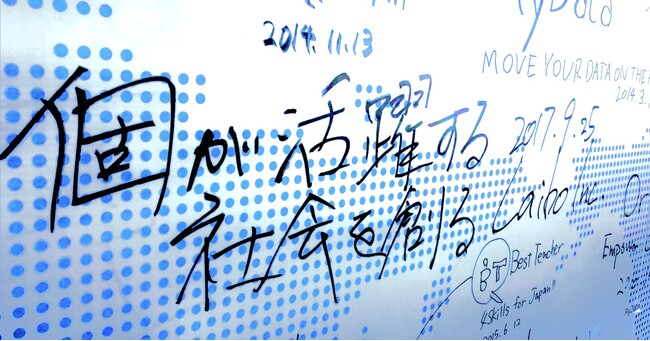 2014.11.13
MOVE YOUR DATA ON THE
2014.3.
個が活躍する 2017.9.25
社会を創る Laibo Inc.
BT Best Teacher
4skills for Japan!!
2015.6.12